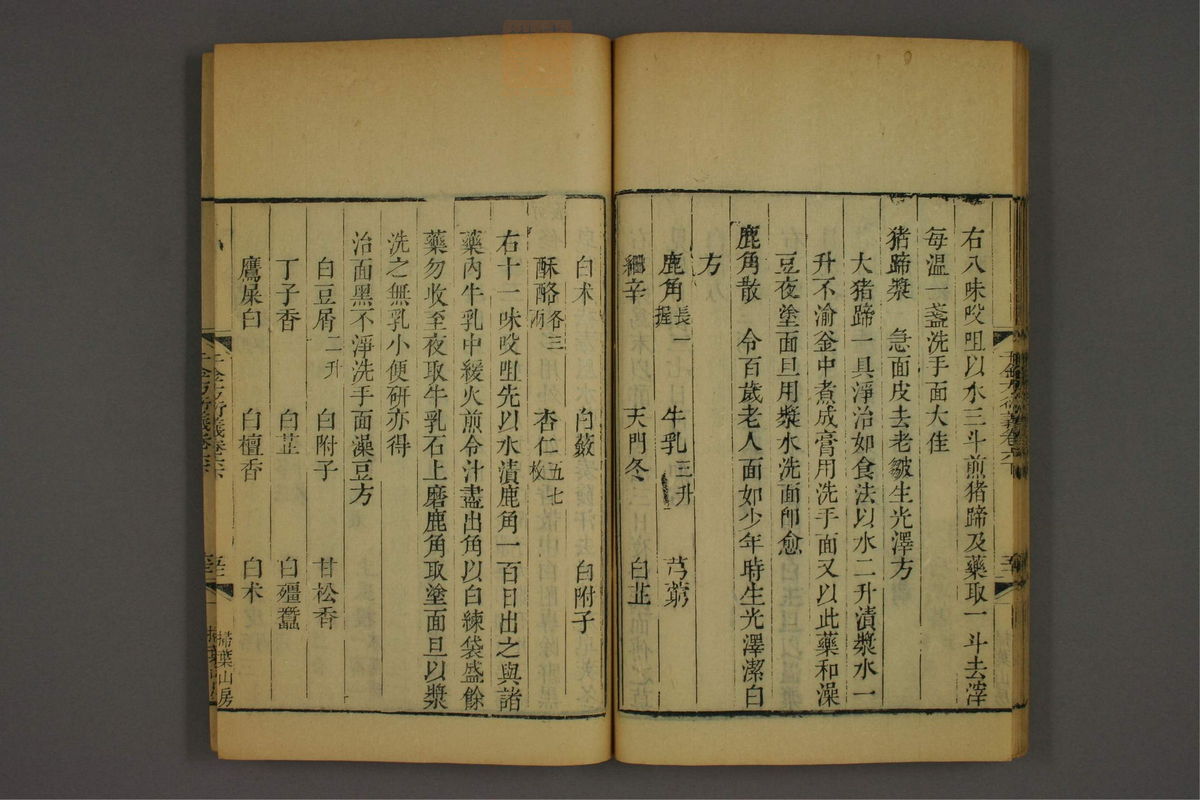 右八味㕮咀以水三斗煎猪蹄及藥取一斗去滓
每温一盞洗手面大佳
猪蹄漿　急面皮去老皺生光澤方
大猪蹄一具淨治如食法以水二升漬漿水一
升不渝釜中煮成膏用洗手面又以此藥和澡
豆夜塗面旦用漿水洗面卽愈
鹿角散　令百歲老人面如少年時生光澤潔白
方
鹿角長一握　牛乳三升　芎藭
細辛　天門冬　白芷
白朮　白蘞　白附子
酥酪各三兩　杏仁五七枚
右十一味㕮咀先以水漬鹿角一百日出之與諸
藥內牛乳中緩火煎令汁盡出角以白練袋盛餘
藥勿收至夜取牛乳石上磨鹿角取塗面旦以漿
洗之無乳小便研亦得
治面黑不淨洗手面澡豆方
白豆屑二升　白附子　甘松香
丁子香　白芷　白殭蠶
鷹屎白　白檀香　白朮
千金方衍義卷六下
掃葉山房